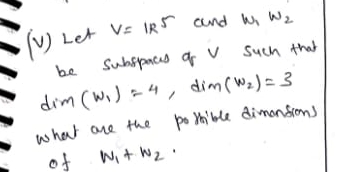 (V) Let V = IR⁵ and W₁ W₂
be subspaces of V such that
dim (W₁) = 4, dim (W₂) = 3
what are the possible dimensions
of W₁ + W₂.